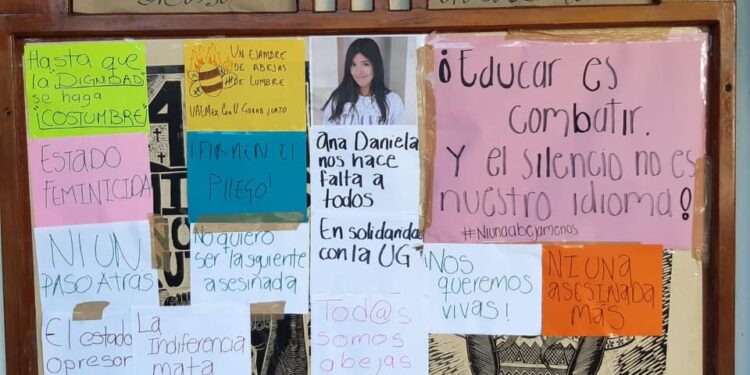 Hasta que
la "DIGNIDAD"
se haga
¡COSTUMBRE!
UN EJAMBRE
DE ABEJAS
DE LUMBRE
UAEMex Con U Guanajuato
ESTADO
FEMINICIDA
¡FIRMEN El
PliEGO!
Ana Daniela
nos hace
falta a
todos
¡Educar es
combatir.
Y el silencio no es
nuestro idioma!
#Niunaabejamenos
NI UN
PASO Atras
No quiero
ser la siguiente
asesinada
En solidaridad
con la UG
¡Nos
queremos
vivas!
NI UNA
ASESINADA
MAS
El estado
opresor
La
Indiferencia
mata
Tod@s
somos
abejas